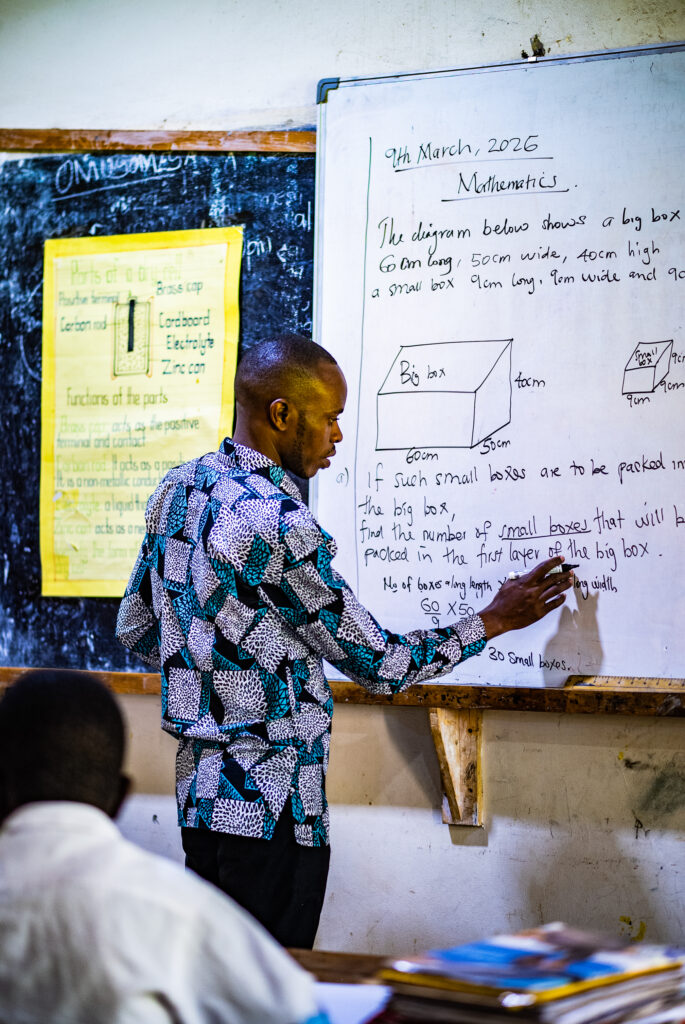 Parts of a dry cell
Positive terminal
Brass cap
Carbon rod
Cardboard
Electrolyte
Zinc can
Functions of the parts
Brass cap: acts as the positive
terminal and contact
Carbon rod: It acts as a
It is a non-metallic
a liquid
Zinc can: acts as a
9th March, 2026
Mathematics.
The diagram below shows a big box
60cm long, 50cm wide, 40cm high
a small box 9cm long, 9cm wide and
Big box
40cm
60cm
50cm
Small box
9cm
9cm
a) If such small boxes are to be packed in
the big box,
find the number of small boxes that will
packed in the first layer of the big box.
No of boxes along length
long width
60 X 50
9
30 Small boxes.